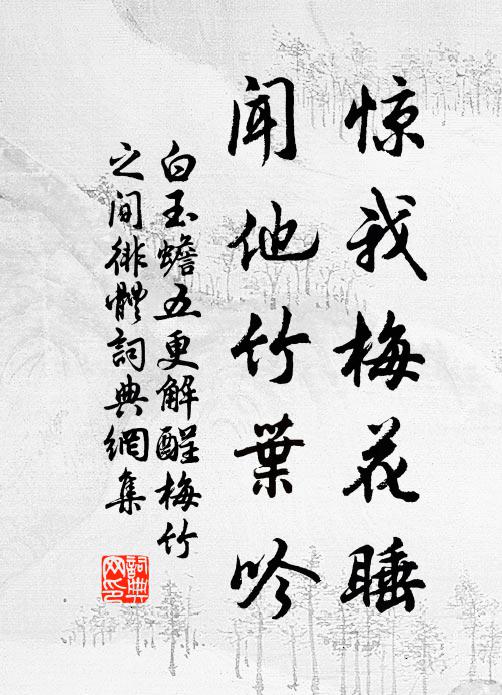 惊我梅花睡
闻他竹叶吟
白玉蟾五更解酲梅竹
之间徘体词典网集
词典网印